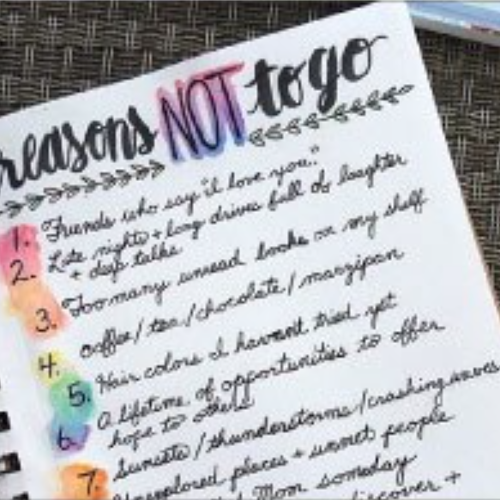 reasons NOT to go
1. Friends who say "i love you."
2. Late nights + long drives full of laughter
+ deep talks
3. Too many unread books on my shelf
4. coffee/tea/chocolate/marzipan
5. Hair colors I havent tried yet
6. A lifetime of opportunities to offer
hope to others
7. Sunsets/thunderstorms/crashing waves
Unexplored places + unmet people
Mom someday
discover +